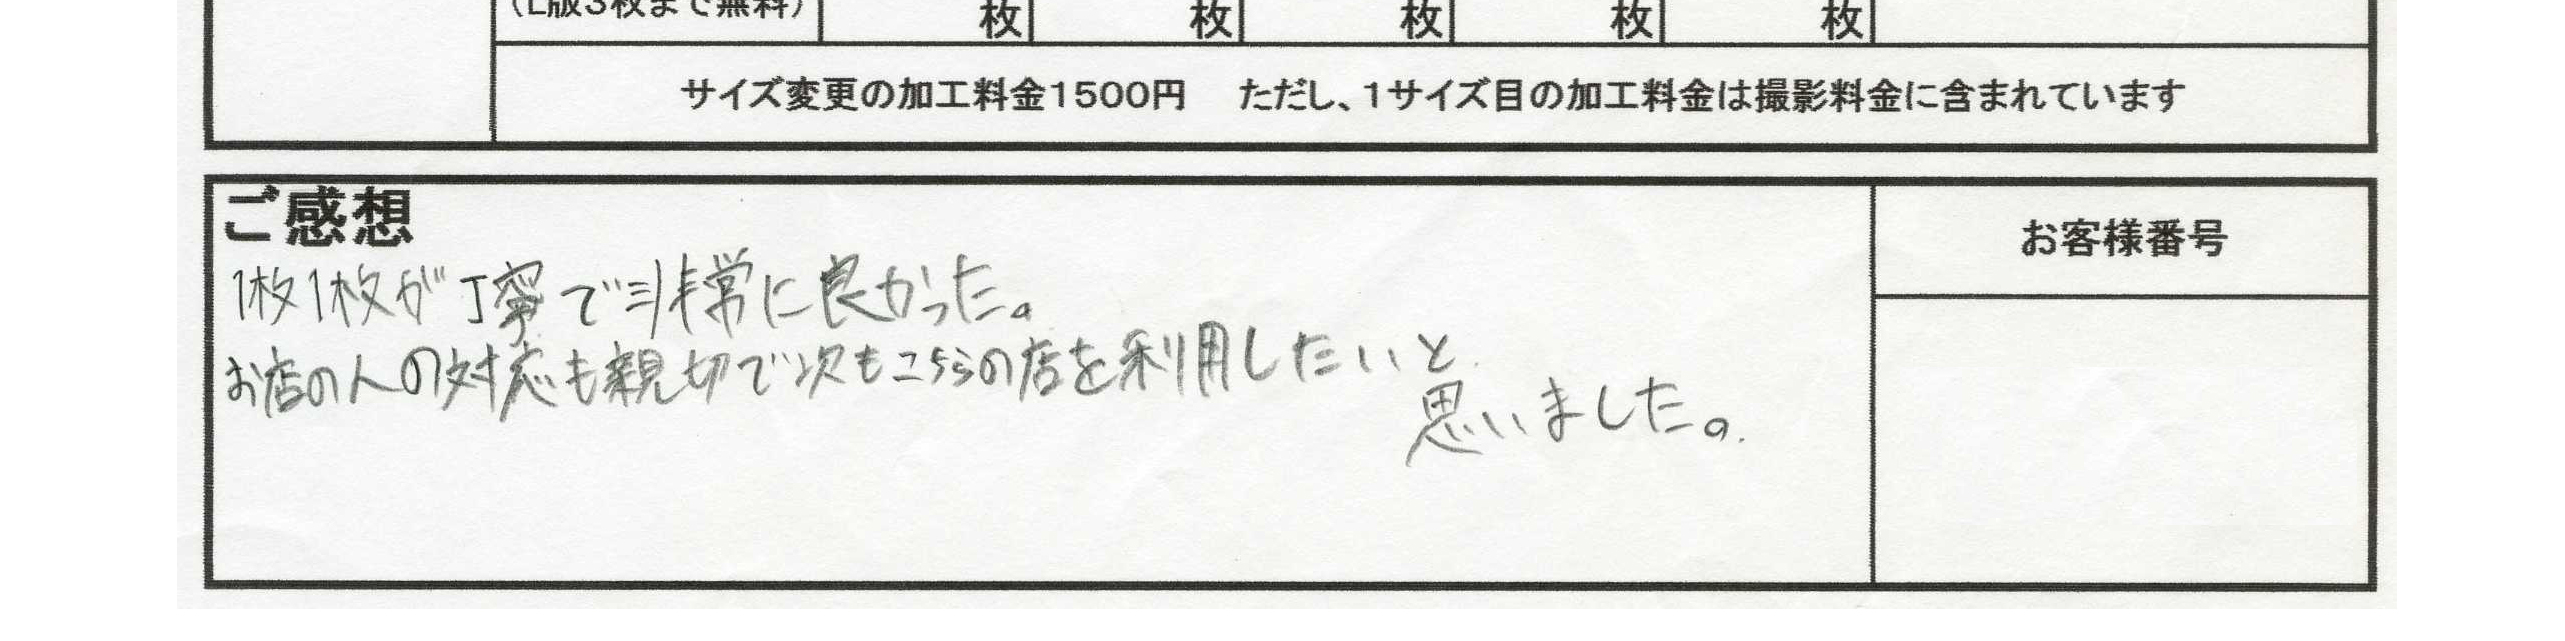 (L版3枚まで無料) 枚 枚 枚 枚 枚
サイズ変更の加工料金1500円 ただし、1サイズ目の加工料金は撮影料金に含まれています
ご感想
お客様番号
1枚1枚が丁寧で非常に良かった。
お店の人の対応も親切で次もこちらの店を利用したいと
思いました。